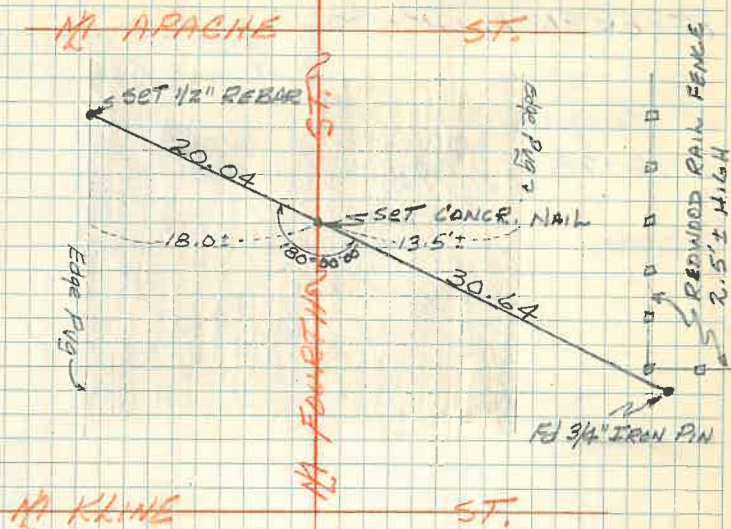 M APACHE ST.
SET 1/2" REBAR
ST.
Edge Pvg
20.04
SET CONCR. NAIL
18.0±
13.5±
180-00-00
30.64
Edge Pvg
M FOURTH
REDWOOD RAIL FENCE
2.5'± HIGH
Fd 3/4" IRON PIN
M KLINE ST.